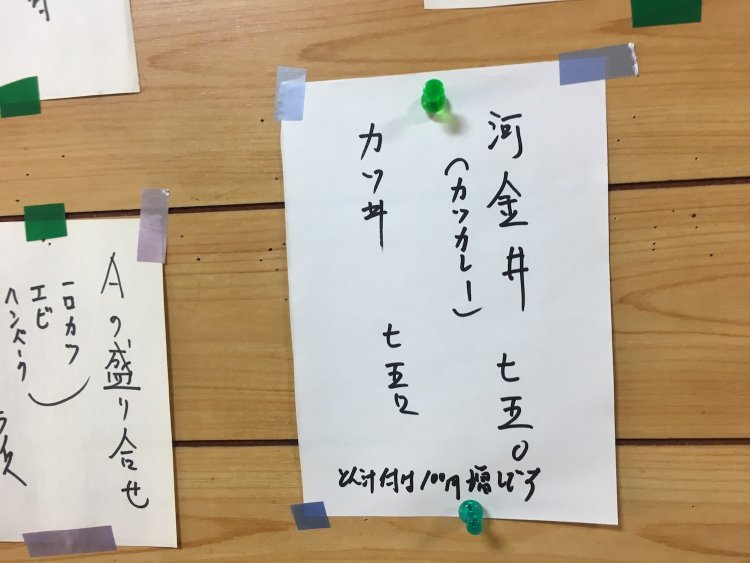 河金丼 七五〇
(カツカレー)
カツ丼 七五〇
とん汁付は100円増しです
Aの盛り合せ
一口カツ
エビ
ハンバーグ